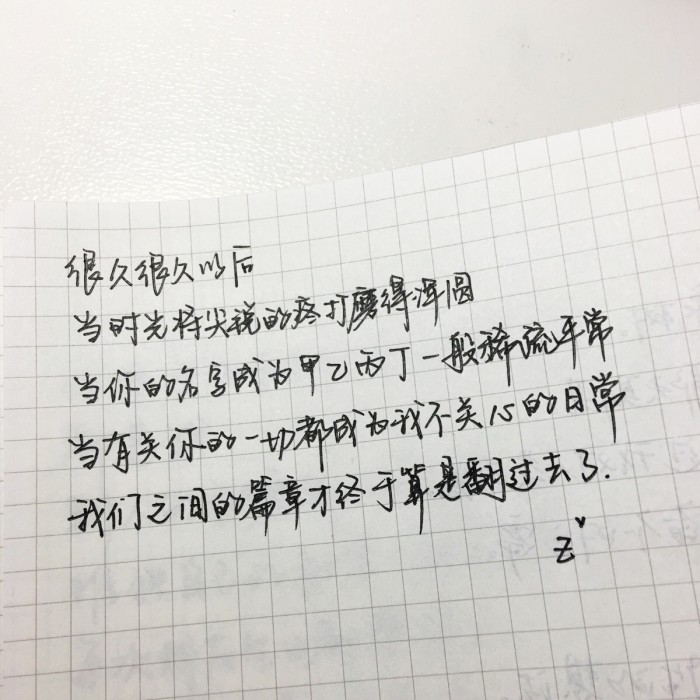 很久很久以后
当时光将尖锐的疼打磨得浑圆
当你的名字成为甲乙丙丁一般稀疏平常
当有关你的一切都成为我不关心的日常
我们之间的篇章才终于算是翻过去了.
Z